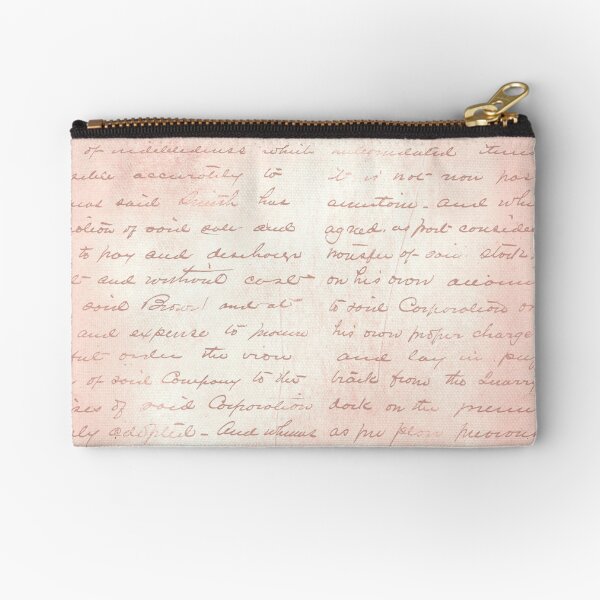 of indebtedness which
accurately to
said Smith has
of said sale and
to pay and discharge
and without cost
said Brown and at
and expense to procure
order the iron
of said Company to the
ises of said Corporation
ly adopted - And whereas
it is not now pos
and whe
agreed as part conside
transfer of said stock
on his own accoun
to said Corporation or
his own proper charge
and lay in
track from the Quarry
dock on the premi
as per plan previous